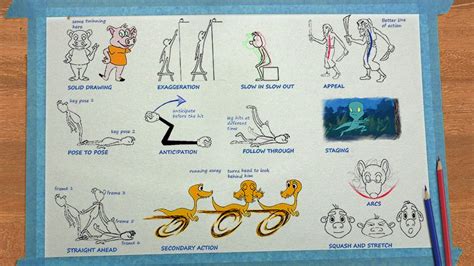 some twinning
here
SOLID DRAWING
EXAGGERATION
SLOW IN SLOW OUT
Better line of
action
APPEAL
key pose 1
key pose 2
POSE TO POSE
anticipate
before the hit
ANTICIPATION
leg hits at
different
time
FOLLOW THROUGH
STAGING
frame 1
frame 2
frame 3
frame 4
STRAIGHT AHEAD
running away
turns head to look
behind him
SECONDARY ACTION
ARCS
SQUASH AND STRETCH